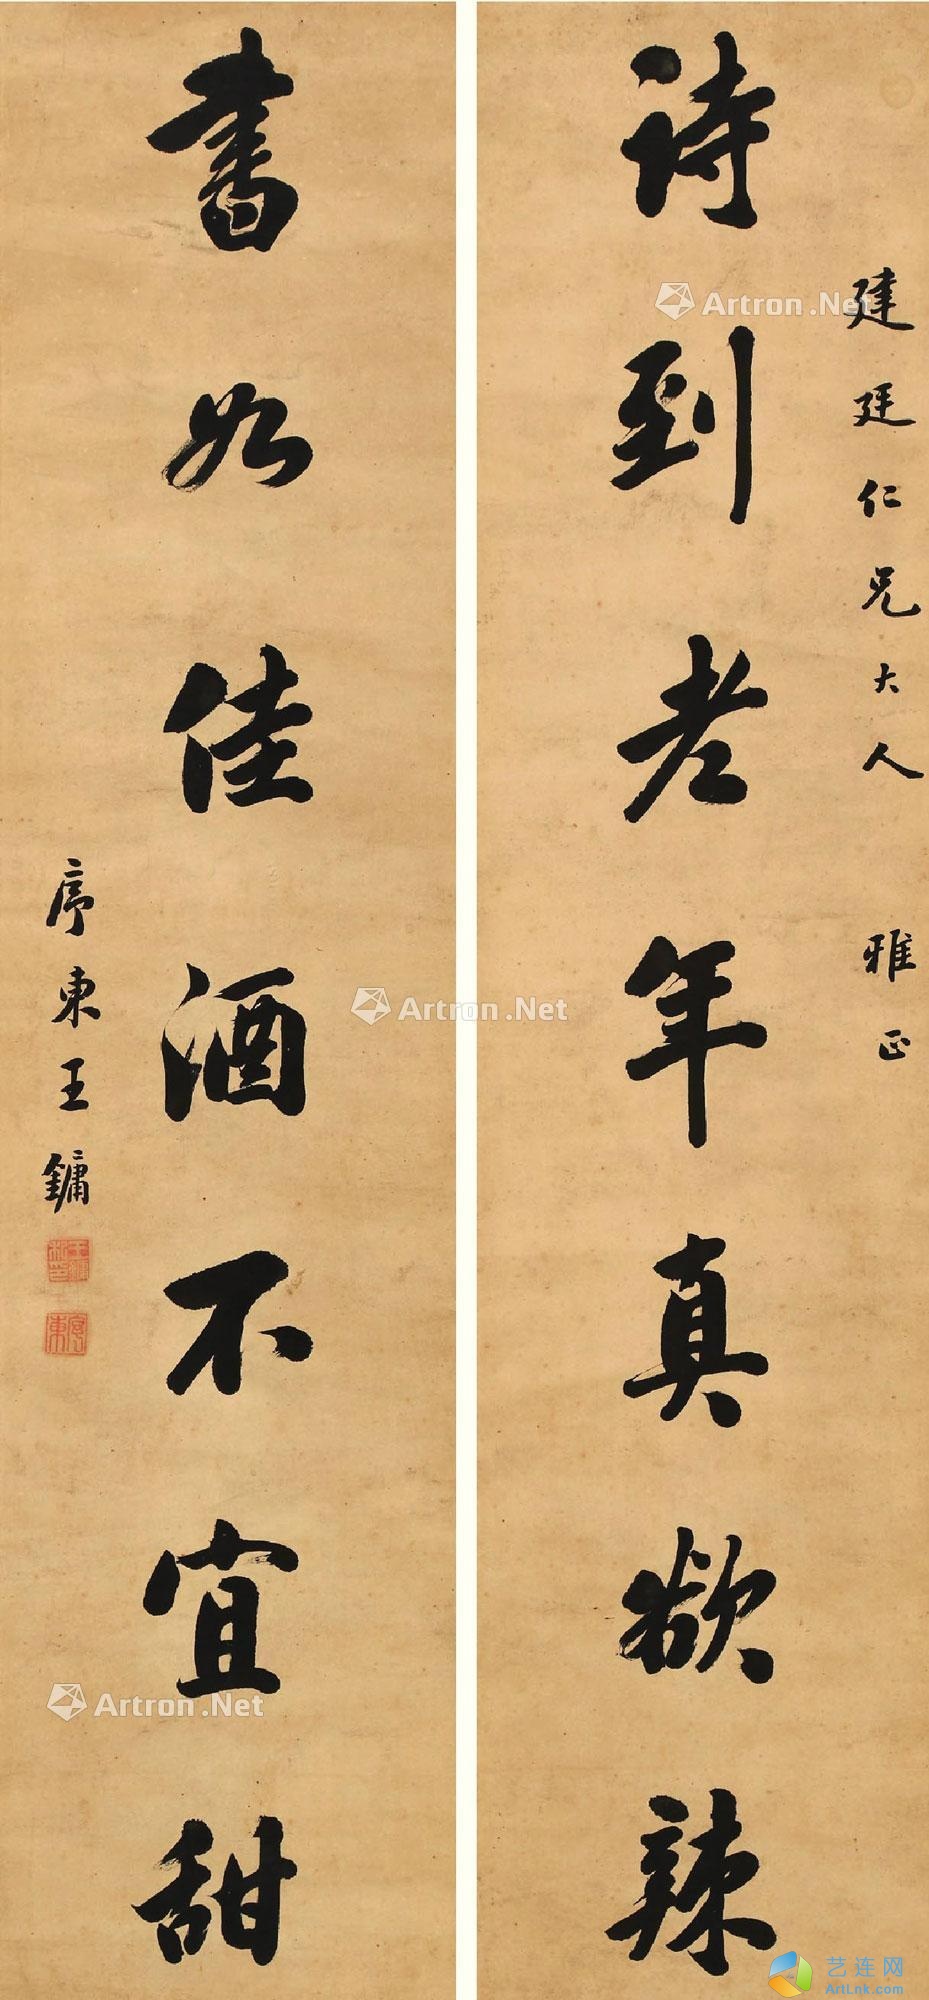 建廷仁兄大人 雅正
詩到老年真欲辣
書如佳酒不宜甜
序東王鏞
Artron.Net
Artron.Net
Artron.Net
艺连网
ArtLnk.com